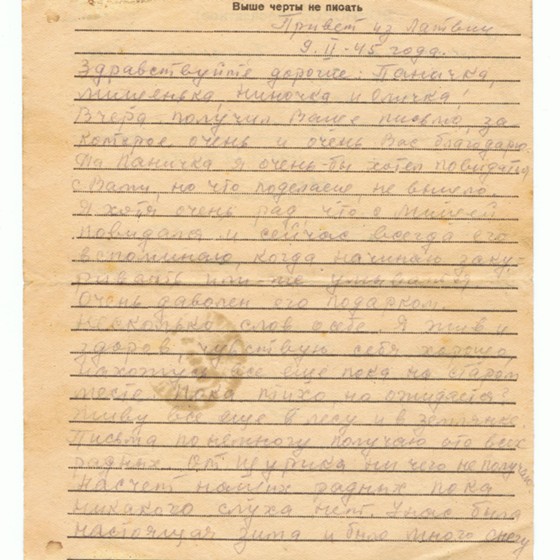 Выше черты не писать
Привет из Латвии
9.II-45 года.
Здравствуйте дорогие: Паначка,
Мишенька, Ниночка и Оличка!
Вчера получил Ваше письмо, за
которое очень и очень Вас благодарю.
Да Паничка я очень-бы хотел повидатся
с Вами, но что поделаешь, не вышло.
Я хотя очень рад, что с Мишей
повидался и сейчас всегда его
вспоминаю, когда начинаю заку-
ривать или-же умыватся.
Очень даволен его подарком.
Несколько слов о себе. Я жив и
здоров, чувствую себя хорошо,
нахожусь все еще пока на старом
месте. Пока тихо, но ожидается
Живу все еще в лесу и в землянке
Письма понемногу получаю ото всех
радных. От Шурика ни чего не получаю
Насчет наших радных пока
никакого слуха нет. У нас была
настоящая зима и было много снегу